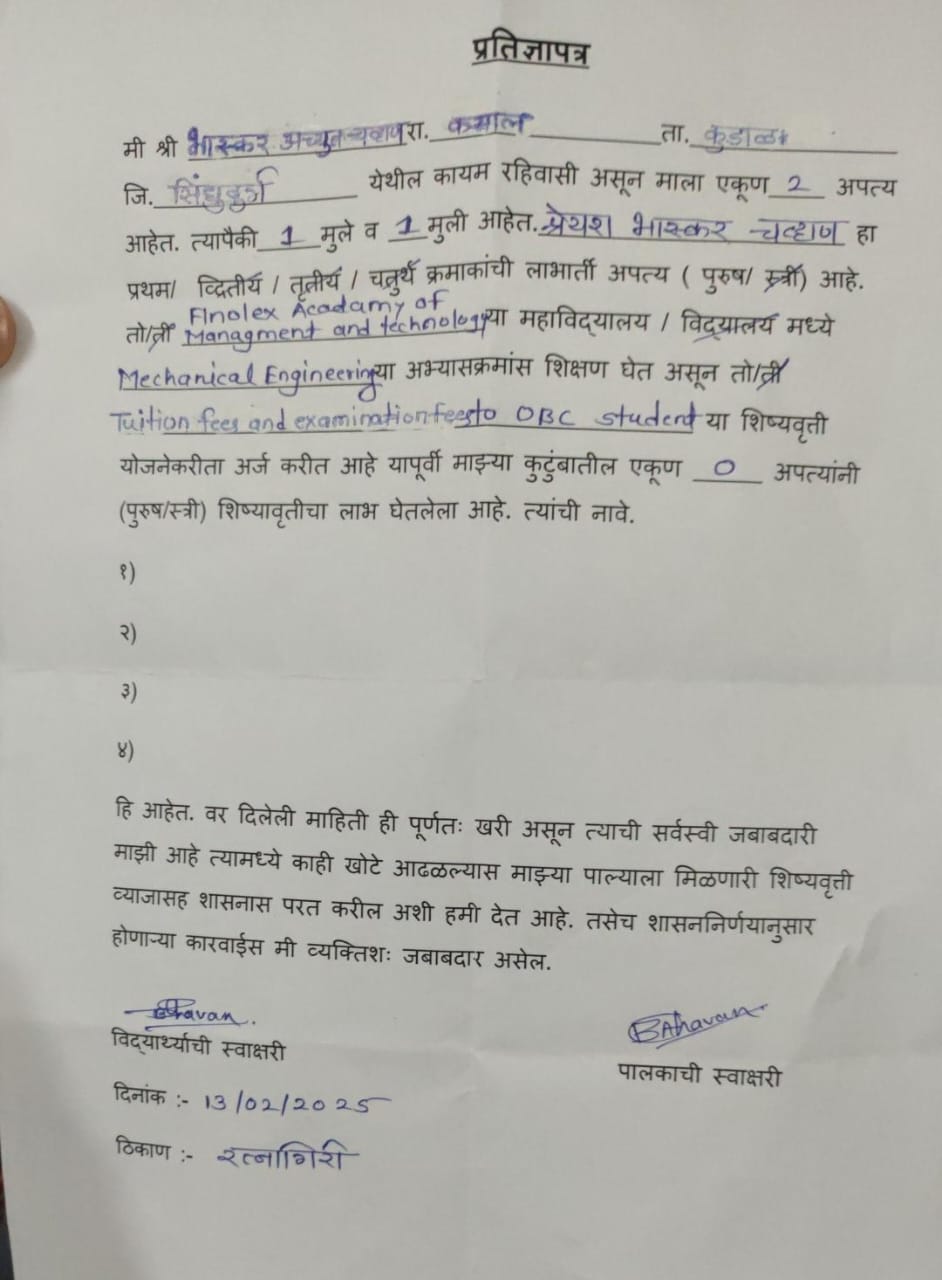 प्रतिज्ञापत्र
मी श्री भास्कर अच्युत चव्हाण रा. कमाल ता. कुडाळ
जि. सिंधुदुर्ग येथील कायम रहिवासी असून माला एकूण 2 अपत्य
आहेत. त्यापैकी 1 मुले व 1 मुली आहेत. प्रेयश भास्कर चव्हाण हा
प्रथम/ व्दितीय / तृतीय / चतुर्थ क्रमाकांची लाभार्ती अपत्य ( पुरुष/ स्त्री) आहे.
Finolex Acadamy of
तो/ती Managment and technology या महाविद्यालय / विद्यालय मध्ये
Mechanical Engineering या अभ्यासक्रमांस शिक्षण घेत असून तो/ती
Tuition fees and examination fees to OBC student या शिष्यवृत्ती
योजनेकरीता अर्ज करीत आहे यापूर्वी माझ्या कुटुंबातील एकूण 0 अपत्यांनी
(पुरुष/स्त्री) शिष्यावृतीचा लाभ घेतलेला आहे. त्यांची नावे.
१)
२)
३)
४)
हि आहेत. वर दिलेली माहिती ही पूर्णतः खरी असून त्याची सर्वस्वी जबाबदारी
माझी आहे त्यामध्ये काही खोटे आढळल्यास माझ्या पाल्याला मिळणारी शिष्यवृत्ती
व्याजासह शासनास परत करील अशी हमी देत आहे. तसेच शासननिर्णयानुसार
होणाऱ्या कारवाईस मी व्यक्तिशः जबाबदार असेल.
विद्यार्थ्याची स्वाक्षरी
पालकाची स्वाक्षरी
दिनांक :- 13/02/2025
ठिकाण :- रत्नागिरी